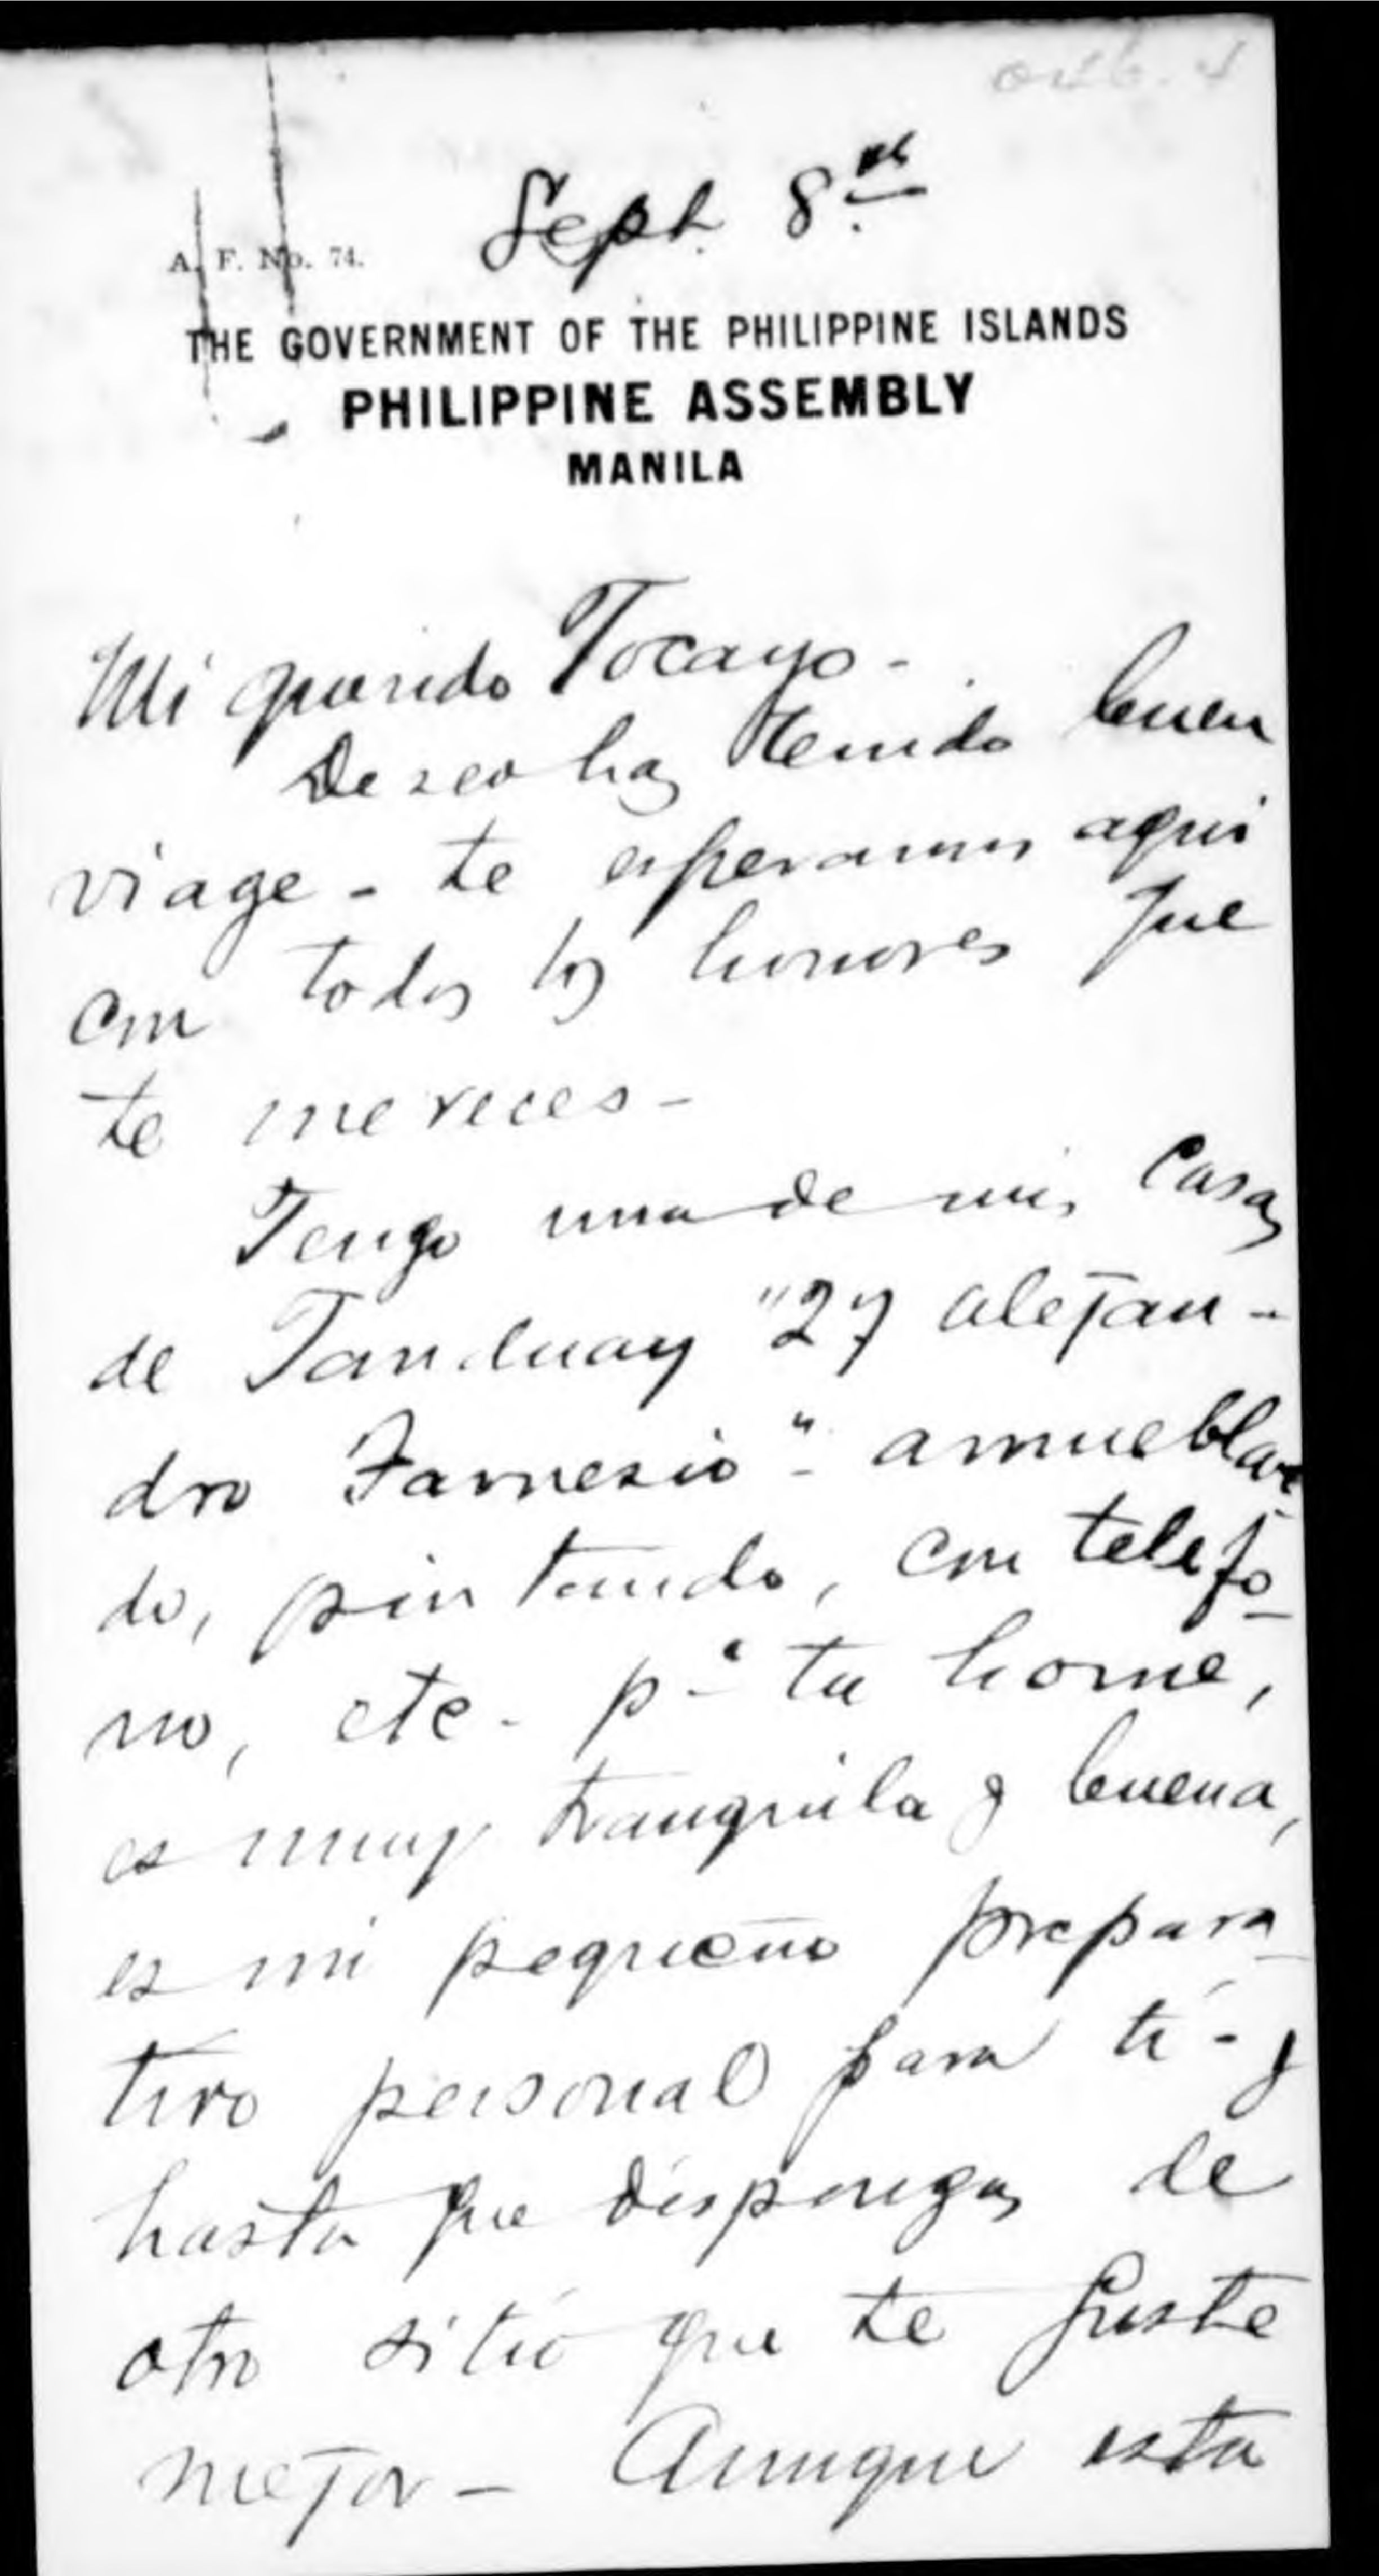 Sept. 8th
A. F. No. 74.
THE GOVERNMENT OF THE PHILIPPINE ISLANDS
PHILIPPINE ASSEMBLY
MANILA
Mi querido Tocayo -
Deseo has tenido buen
viage - te esperamos aqui
con todos los honores que
te mereces -
Tengo una de mis casas
de Tanduay "27 Alejan-
dro Farnesio" - amueblan-
do, pintando, con telefo-
no, etc - pª tu home,
es muy tranquila y buena,
es mi pequeño prepara-
tivo personal para tí - y
hasta que dispongas de
otro sitio que te guste
mejor - Aunque esta